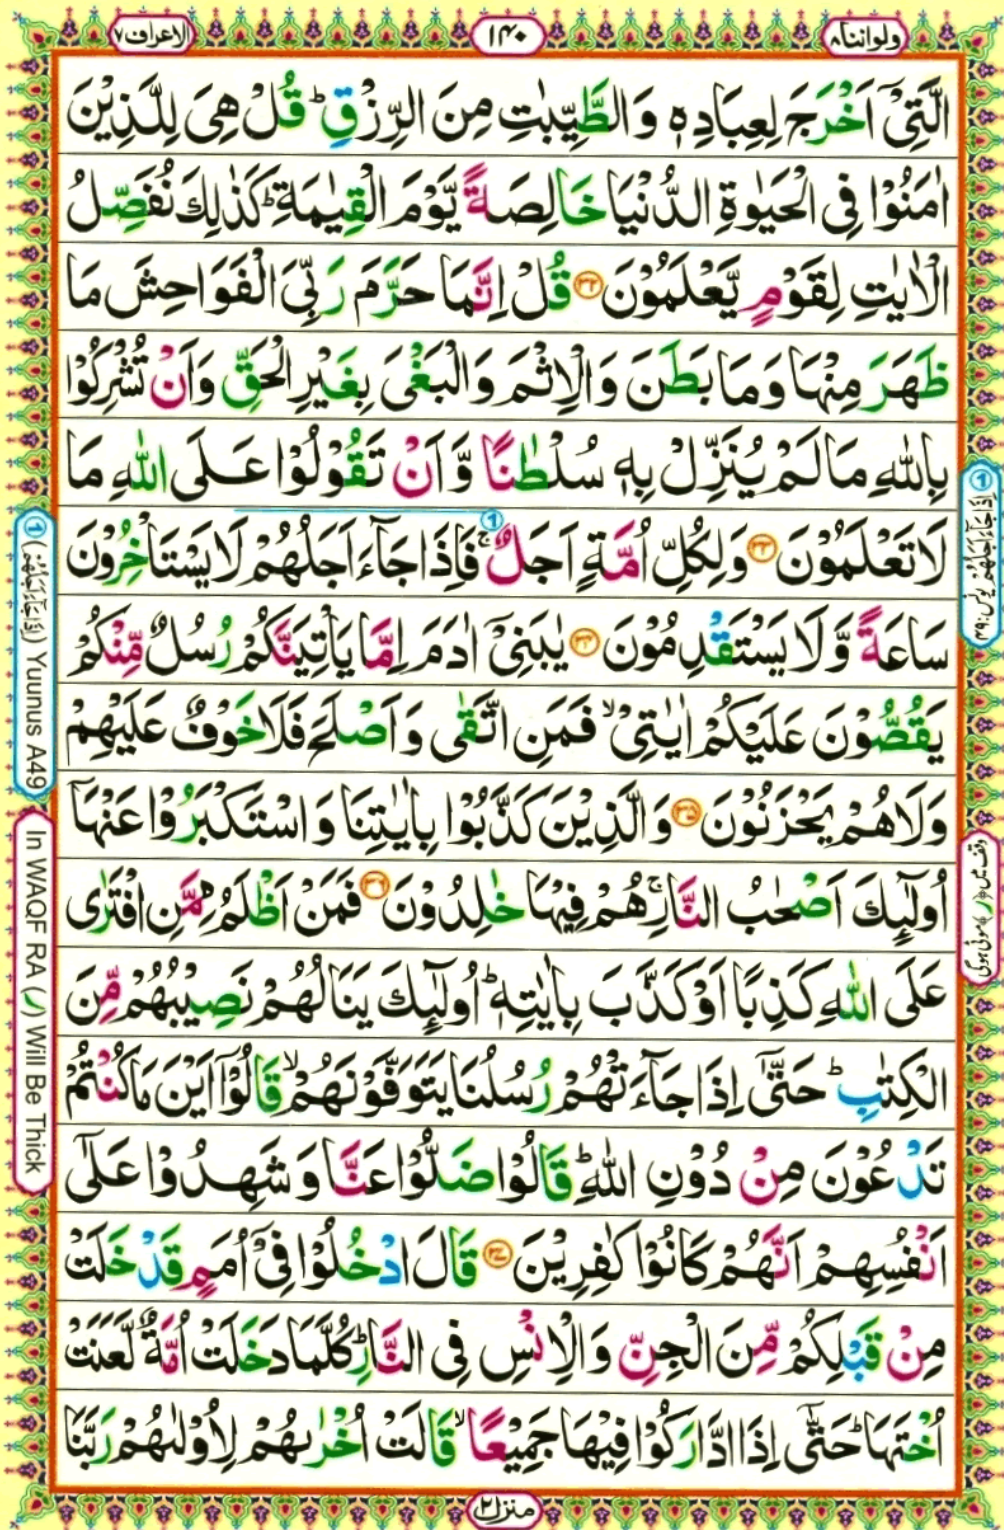 ولواننا٨
١٤٠
الاعراف٧
الَّتِىْٓ اَخْرَجَ لِعِبَادِهٖ وَالطَّيِّبٰتِ مِنَ الرِّزْقِ ؕ قُلْ هِىَ لِلَّذِيْنَ
اٰمَنُوْا فِى الْحَيٰوةِ الدُّنْيَا خَالِصَةً يَّوْمَ الْقِيٰمَةِ ؕ كَذٰلِكَ نُفَصِّلُ
الْاٰيٰتِ لِقَوْمٍ يَّعْلَمُوْنَ ﴿۳۲﴾ قُلْ اِنَّمَا حَرَّمَ رَبِّىَ الْفَوَاحِشَ مَا
ظَهَرَ مِنْهَا وَمَا بَطَنَ وَالْاِثْمَ وَالْبَغْىَ بِغَيْرِ الْحَقِّ وَاَنْ تُشْرِكُوْا
بِاللّٰهِ مَا لَمْ يُنَزِّلْ بِهٖ سُلْطٰنًا وَّاَنْ تَقُوْلُوْا عَلَى اللّٰهِ مَا
لَا تَعْلَمُوْنَ ﴿۳۳﴾ وَلِكُلِّ اُمَّةٍ اَجَلٌ ۚ فَاِذَا جَآءَ اَجَلُهُمْ لَا يَسْتَاْخِرُوْنَ
سَاعَةً وَّلَا يَسْتَقْدِمُوْنَ ﴿۳۴﴾ يٰبَنِىْٓ اٰدَمَ اِمَّا يَاْتِيَنَّكُمْ رُسُلٌ مِّنْكُمْ
يَقُصُّوْنَ عَلَيْكُمْ اٰيٰتِىْ ۙ فَمَنِ اتَّقٰى وَاَصْلَحَ فَلَا خَوْفٌ عَلَيْهِمْ
وَلَا هُمْ يَحْزَنُوْنَ ﴿۳۵﴾ وَالَّذِيْنَ كَذَّبُوْا بِاٰيٰتِنَا وَاسْتَكْبَرُوْا عَنْهَآ
اُولٰٓئِكَ اَصْحٰبُ النَّارِ ۚ هُمْ فِيْهَا خٰلِدُوْنَ ﴿۳۶﴾ فَمَنْ اَظْلَمُ مِمَّنِ افْتَرٰى
عَلَى اللّٰهِ كَذِبًا اَوْ كَذَّبَ بِاٰيٰتِهٖ ؕ اُولٰٓئِكَ يَنَالُهُمْ نَصِيْبُهُمْ مِّنَ
الْكِتٰبِ ؕ حَتّٰٓى اِذَا جَآءَتْهُمْ رُسُلُنَا يَتَوَفَّوْنَهُمْ ۙ قَالُوْٓا اَيْنَ مَا كُنْتُمْ
تَدْعُوْنَ مِنْ دُوْنِ اللّٰهِ ؕ قَالُوْا ضَلُّوْا عَنَّا وَشَهِدُوْا عَلٰٓى
اَنْفُسِهِمْ اَنَّهُمْ كَانُوْا كٰفِرِيْنَ ﴿۳۷﴾ قَالَ ادْخُلُوْا فِىْٓ اُمَمٍ قَدْ خَلَتْ
مِنْ قَبْلِكُمْ مِّنَ الْجِنِّ وَالْاِنْسِ فِى النَّارِ ؕ كُلَّمَا دَخَلَتْ اُمَّةٌ لَّعَنَتْ
اُخْتَهَا ؕ حَتّٰٓى اِذَا ادَّارَكُوْا فِيْهَا جَمِيْعًا ۙ قَالَتْ اُخْرٰىهُمْ لِاُوْلٰىهُمْ رَبَّنَا
منزل٢
① اِذَا جَآءَ اَجَلُهُمْ یونس:۴۹
وقف میں (ر) موٹی ہوگی
① (اِذَا جَآءَ اَجَلُهُمْ) Yuunus A49
In WAQF RA (ر) Will Be Thick